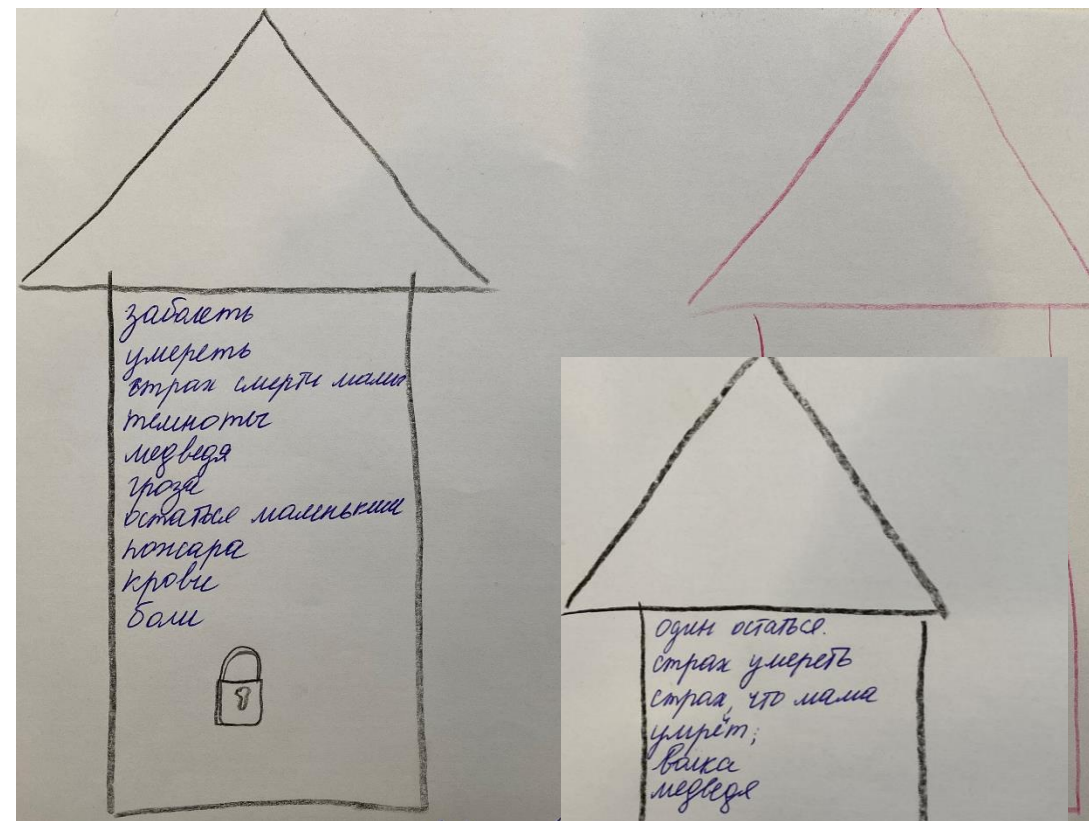 заболеть
умереть
страх смерти мамы
темноты
медведя
гроза
остаться маленьким
пожара
крови
боли
один остаться.
страх умереть
страх, что мама
умрёт;
волка
медведя